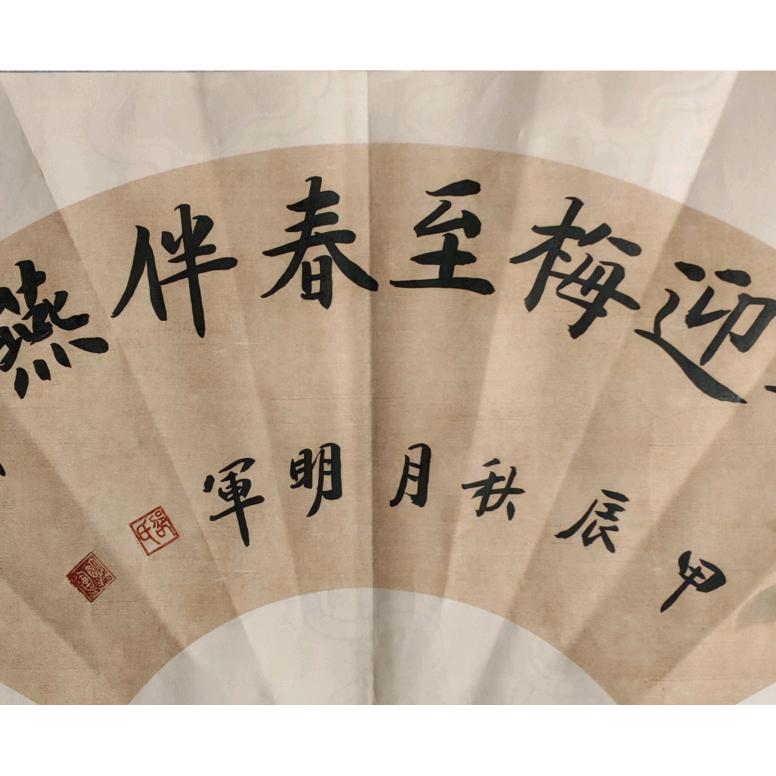 迎梅至春伴燕
甲辰秋月明軍